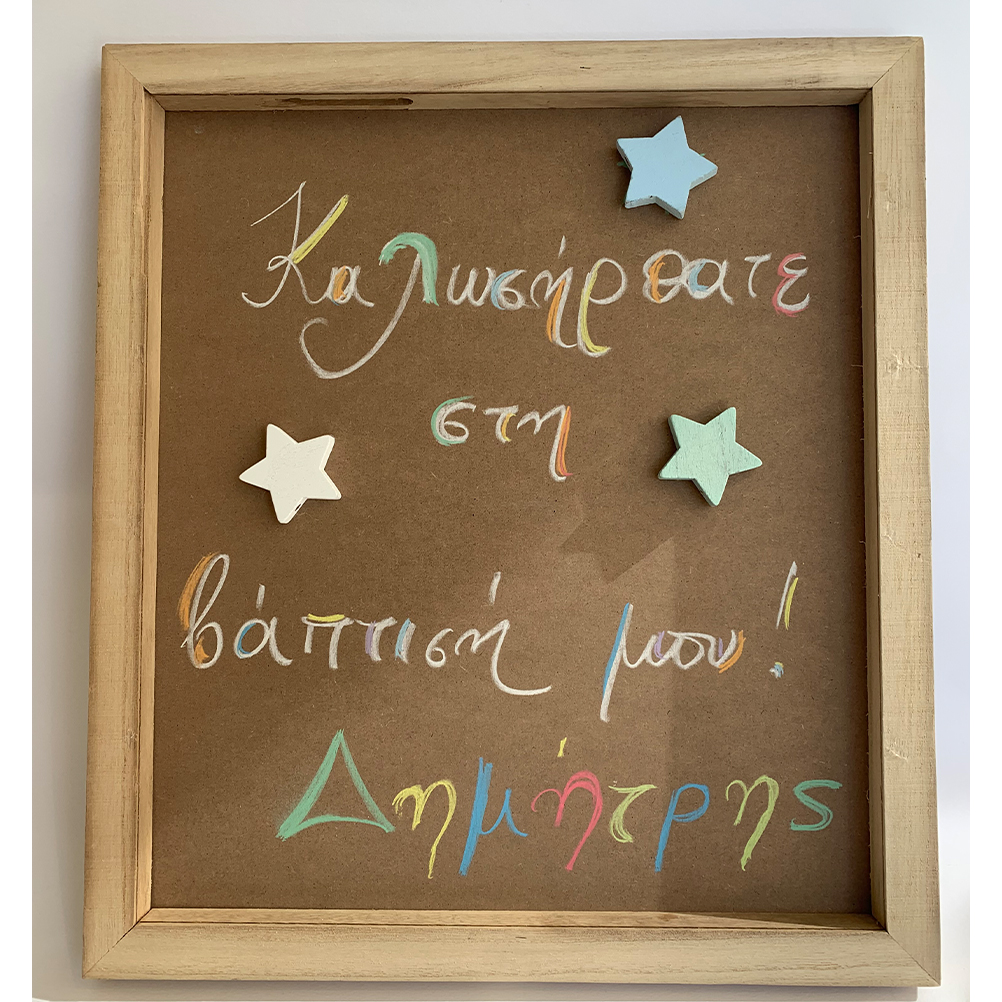 Καλωσήρθατε
στη
βάπτισή μου!
Δημήτρης